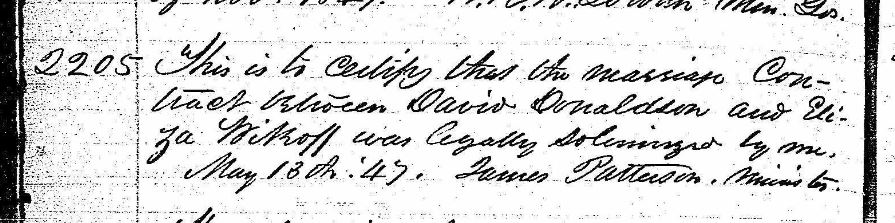 of Nov. 1847. Min. Gos.
2205 This is to certify that the marriage Con-
tract between David Donaldson and Eli-
za Wikoff was legally Solemnized by me.
May 13th. '47. James Patterson. Minister.